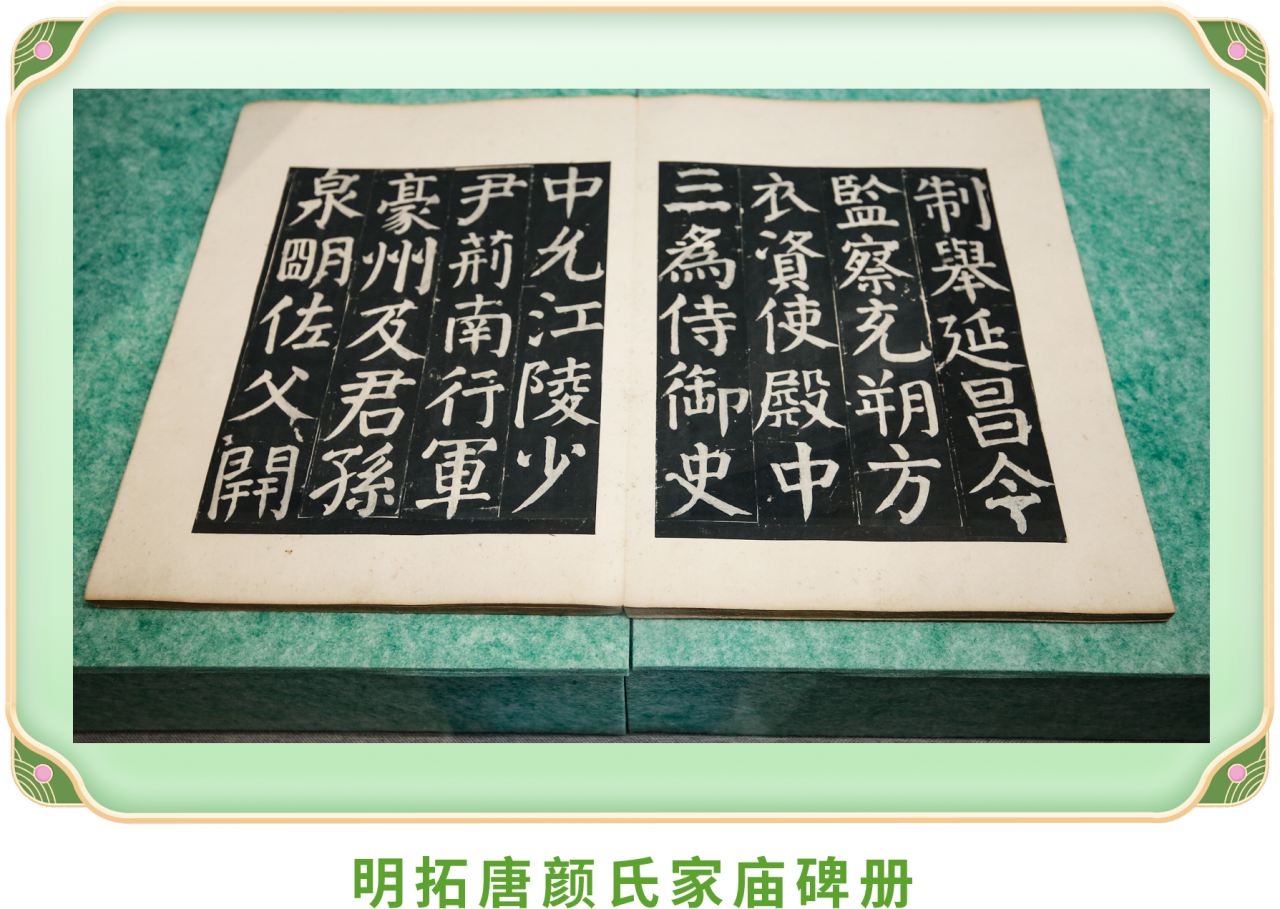 制舉延昌令
監察充朔方
衣資使殿中
三為侍御史
中允江陵少
尹荊南行軍
豪州及君孫
泉朙佐父開
明拓唐颜氏家庙碑册